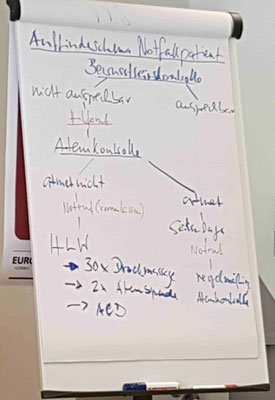 Auffindeschema Notfallpatient
Bewusstseinskontrolle
nicht ansprechbar
ansprechbar
Hilferuf
Atemkontrolle
atmet nicht
atmet
Notruf (veranlassen)
Seitenlage
Notruf
HLW
→ 30x Druckmassage
regelmäßig
→ 2x Atemspende
Atemkontrolle
→ AED
EURO